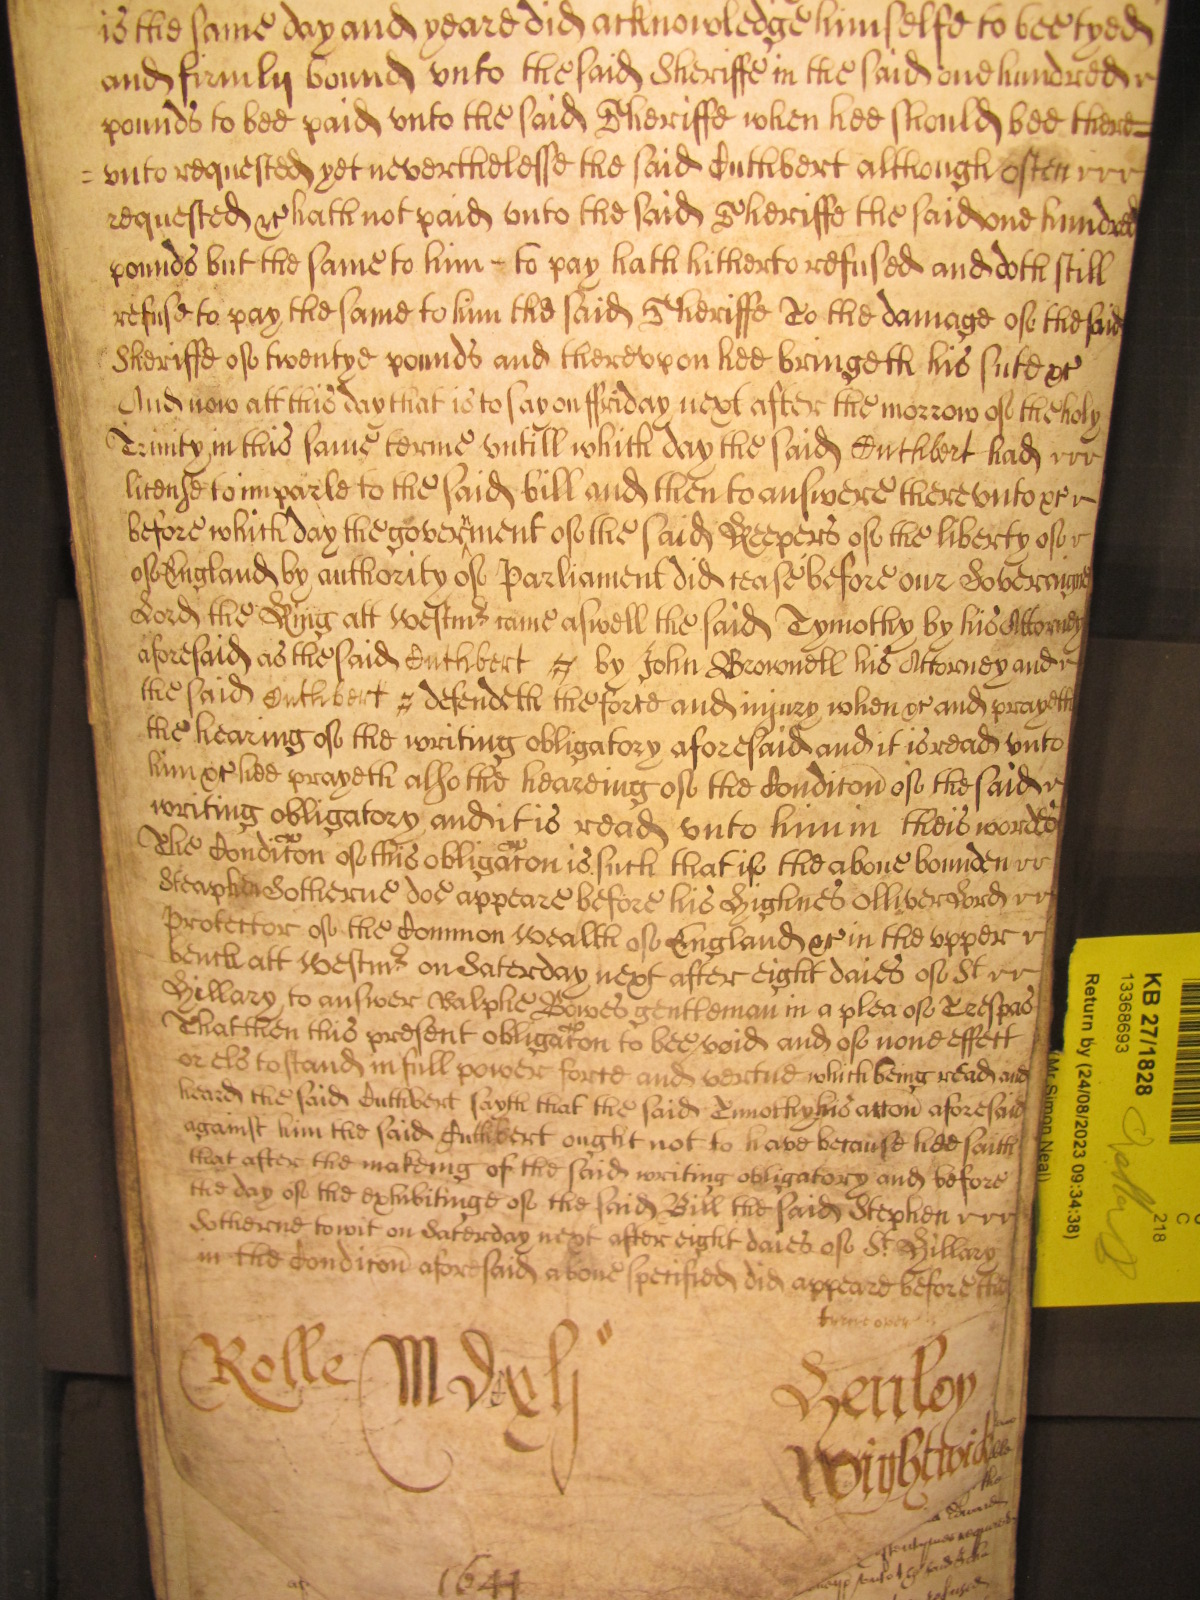 is the same day and yeare did acknowledge himselfe to bee tyed
and firmly bound vnto the said Sheriffe in the said one hundred
pounds to bee paid vnto the said Sheriffe when hee should bee there=
=vnto requested yet neverthelesse the said Cuthbert although often
requested &c hath not paid vnto the said Sheriffe the said one hundred
pounds but the same to him - to pay hath hitherto refused and doth still
refuse to pay the same to him the said Sheriffe To the damage of the said
Sheriffe of twentye pounds and therevpon hee bringeth his sute &c
And now att this day that is to say on ffriday next after the morrow of the holy
Trinity in this same terme vntill which day the said Cuthbert had
license to imparle to the said bill and then to answere there vnto &c
before which day the goverment of the said Keepers of the liberty of
of England by authority of Parliament did cease before our Soveraigne
Lord the King att Westmr came aswell the said Tymothy by his Attorney
aforesaid as the said Cuthbert by John Brownell his Attorney and
the said Cuthbert defendeth the force and injury when &c and prayeth
the hearing of the writing obligatory aforesaid and it is read vnto
him &c hee prayeth also the heareing of the Conditon of the said
writing obligatory and it is read vnto him in theis wordes
The Conditon of this obligaton is such that if the above bounden
Steaphen Sotherne doe appeare before his Highnes Olliver Lord
Protector of the Common Wealth of England &c in the vpper
bench att Westmr on Saterday next after eight daies of St
Hillary to answer Ralphe Bowes gentleman in a plea of Trespas
That then this present obligaton to bee void and of none effect
or els to stand in full power force and vertue which being read and
heard the said Cuthbert sayth that the said Timothy his accon aforesaid
against him the said Cuthbert ought not to have because hee saith
that after the makeing of the said writing obligatory and before
the day of the exhibitinge of the said Bill the said Stephen
Sotherne towit on Saterday next after eight daies of St Hillary
in the Conditon aforesaid above specified did appeare before the
turne over
Rolle MDxlj
Henley
Wightwick
1641
KB 27/1828
13368693
218
Return by (24/08/2023 09:34:38)
(Mr Simon Neal)